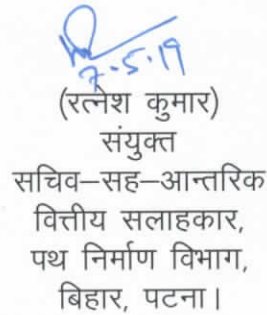 7-5-19
(रत्नेश कुमार)
संयुक्त
सचिव–सह–आन्तरिक
वित्तीय सलाहकार,
पथ निर्माण विभाग,
बिहार, पटना।